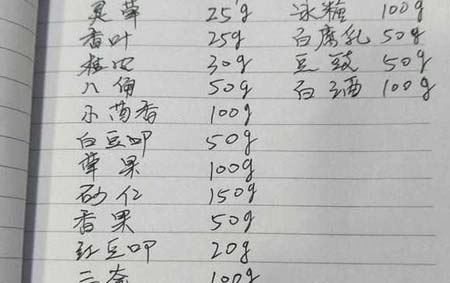 灵草 25g 冰糖 100g
香叶 25g 白腐乳 50g
30g 豆豉 50g
八角 50g 白酒 100g
小茴香 100g
白豆叩 50g
草果 100g
砂仁 150g
香果 50g
红豆叩 20g
三奈 100g